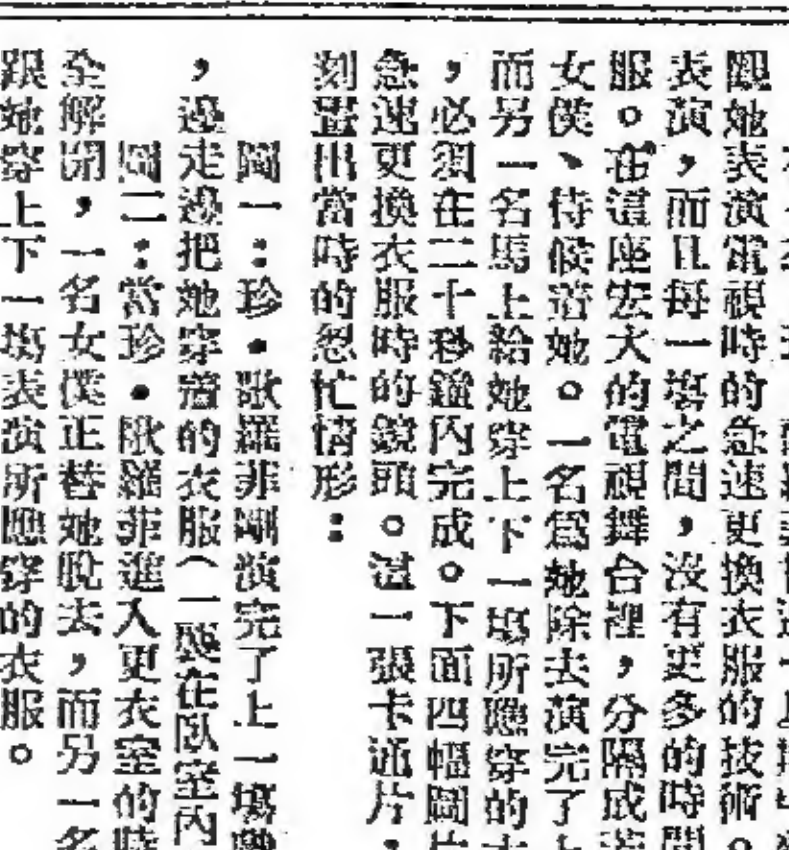 跟她表演電視時的急速更換衣服的技術。
表演，而且每一場之間，沒有更多的時間
服。在這座宏大的電視舞台裡，分隔成
女僕、侍候着她。一名爲她除去演完了上
而另一名馬上給她穿上下一場所應穿的
，必須在二十秒鐘內完成。下面四幅圖片
急速更換衣服時的鏡頭。這一張卡通片，
刻畫出當時的怱忙情形：
圖一：珍•歌羅菲剛演完了上一場
，邊走邊把她穿着的衣服（一襲在臥室內
圖二：當珍•歌羅菲進入更衣室的時
全解開，一名女僕正替她脫去，而另一名
跟她穿上下一場表演所應穿的衣服。